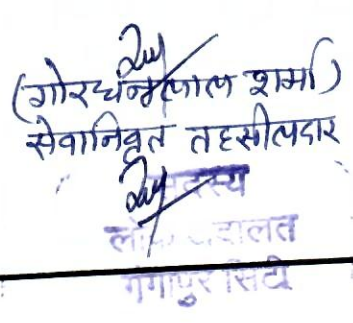 (गोरधनलाल शर्मा)
सेवानिवृत तहसीलदार
सदस्य
लोक अदालत
गंगापुर सिटी